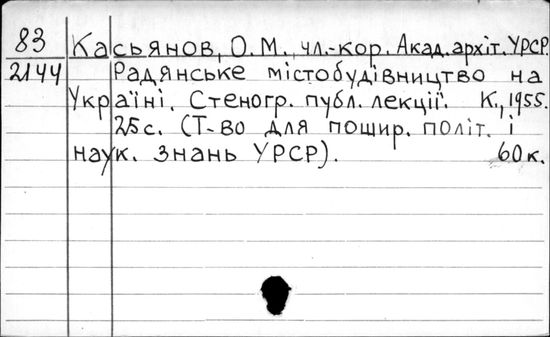 83 Касьянов, О. М., чл.-кор. Акад. архіт. УРСР.
2144 Радянське містобудівництво на
Україні. Стеногр. публ. лекції. К., 1955.
25 с. (Т-во для пошир. політ. і
наук. знань УРСР). 60 к.